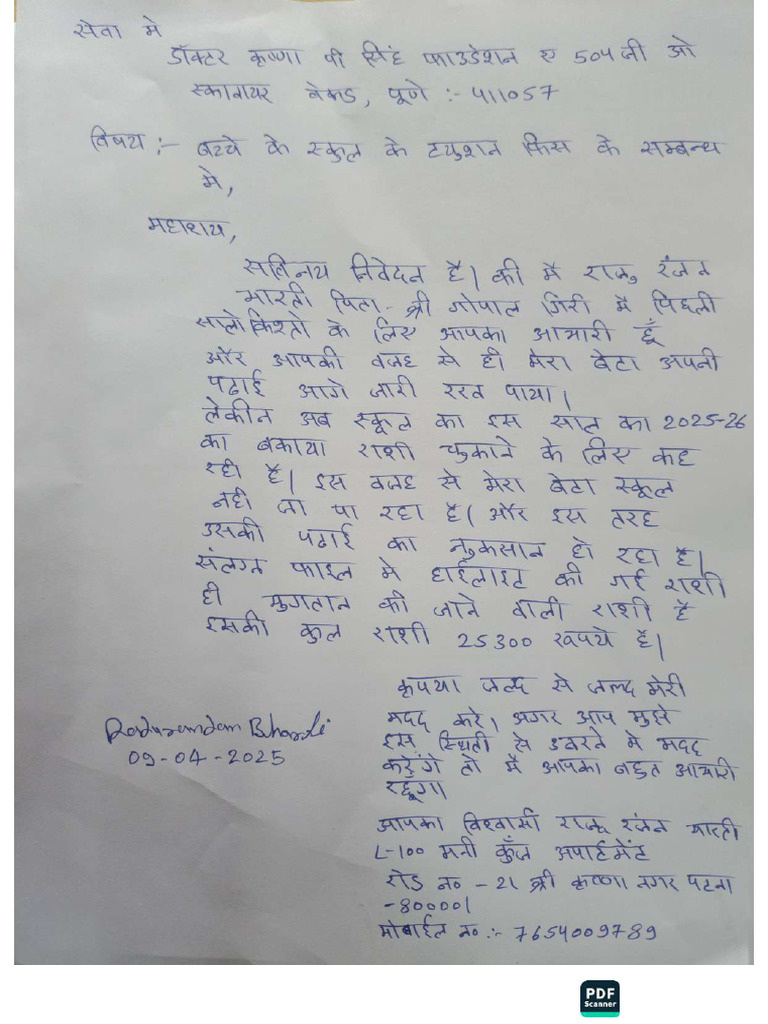 सेवा मे
डॉक्टर कृष्णा पी सिंह फाउडेशन ए 504 जी ओ
स्कवायर वेकड, पूणे :- 411057
विषय :- बच्चे के स्कुल के टयुशन फिस के सम्बन्ध
मे,
महाशय,
सविनय निवेदन है। की मै राजु रंजन
भारती पिता - श्री गोपाल गिरी मै पिछली
सालो किश्तो के लिए आपका आभारी हूँ
और आपकी वजह से ही मेरा बेटा अपनी
पढाई आगे जारी रख पाया।
लेकीन अब स्कूल का इस साल का 2025-26
का बकाया राशी चुकाने के लिए कह
रही है। इस वजह से मेरा बेटा स्कूल
नही जा पा रहा है। और इस तरह
उसकी पढाई का नुकसान हो रहा है।
संलग्न फाइल मे हाईलाइट की गई राशी
ही भुगतान की जाने वाली राशी है
इसकी कुल राशी 25300 रूपये है।
कृपया जल्द से जल्द मेरी
मदद करे। अगर आप मुझे
इस स्थिती से उबरने मे मदद
करेंगे तो मै आपका बहुत आभारी
रहूँगा।
Bharti
09-04-2025
आपका विश्वासी राजू रंजन भारती
L-100 मनी कुँज अपार्टमेंट
रोड न० - 21 श्री कृष्णा नगर पटना
-800001
मोबाईल न० :- 7654009789
PDF
Scanner